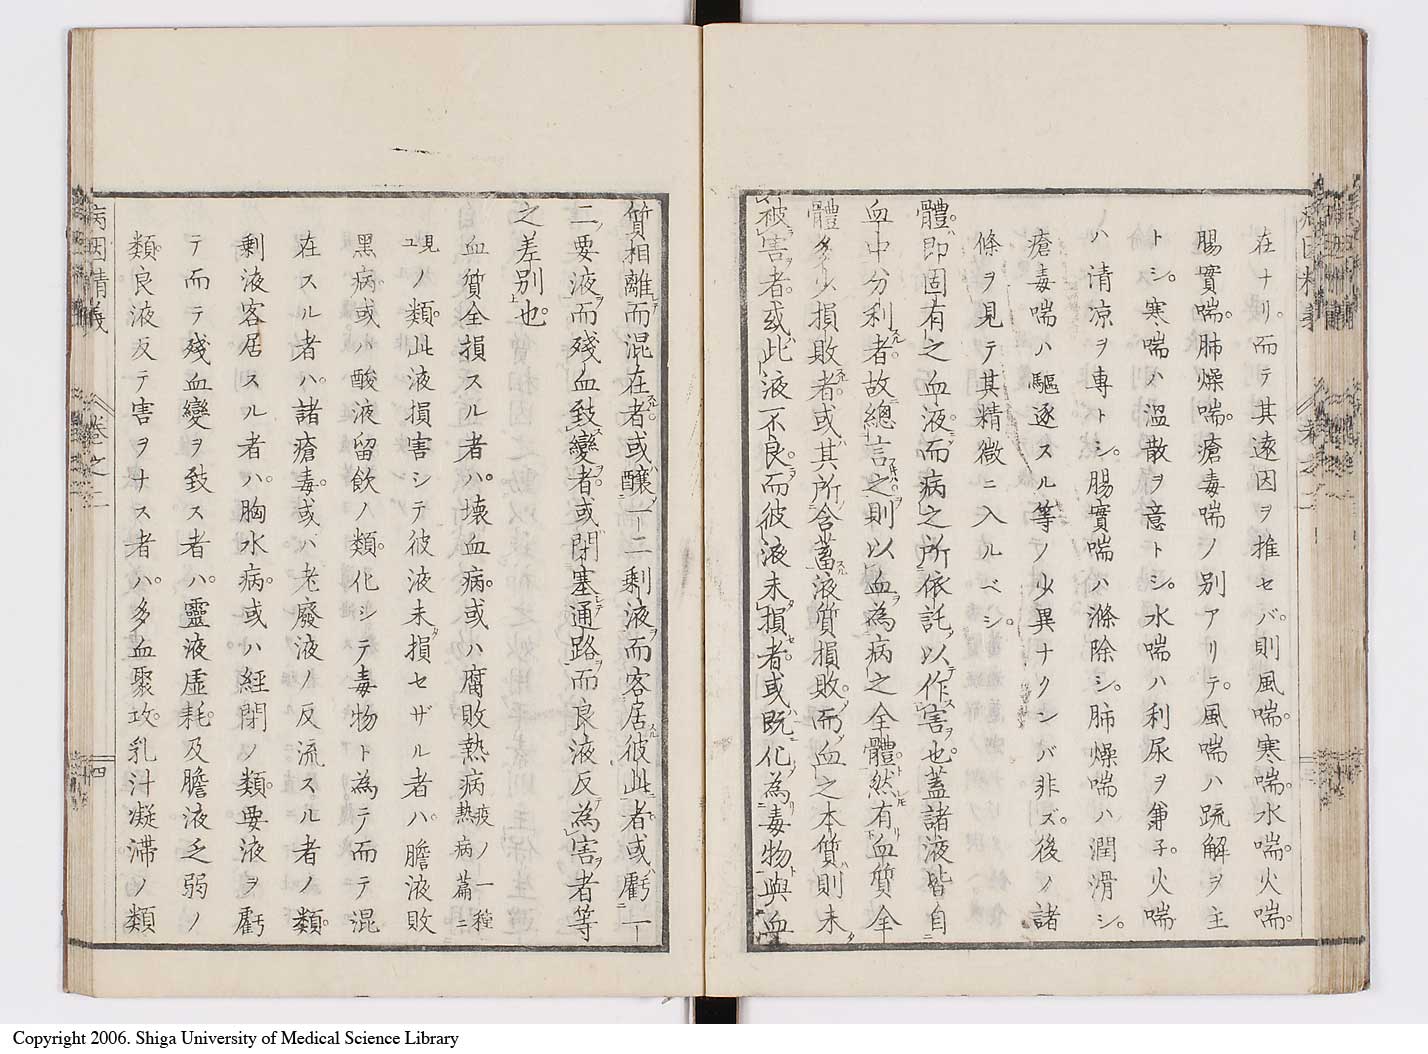 在ナリ。而テ其遠因ヲ推セバ則風喘。寒喘。水喘。火喘。
腸實喘。肺燥喘。瘡毒喘ノ別アリテ。風喘ハ疏解ヲ主
トシ。寒喘ハ溫散ヲ意トシ。水喘ハ利尿ヲ兼子。火喘
ハ清凉ヲ專トシ。腸實喘ハ滌除シ。肺燥喘ハ潤滑シ。
瘡毒喘ハ驅逐スル等ノ少異ナクンバ非ズ。後ノ諸
條ヲ見テ其精微ニ入ルベシ。
體即固有之血液而病之所依託以作害也蓋諸液皆自
血中分利者故總言之則以血為病之全體然有血質全
體多少損敗者或其所含蓄液質損敗而血之本質則未
被害者或此液不良而彼液未損者或既化為毒物與血
質相離而混在者或釀一二剩液而客居彼此者或虧一
二要液而殘血致變者或閉塞通路而良液反為害者等
之差別也
血質全損スル者ハ。壞血病。或ハ腐敗熱病疫ノ一種熱病篇ニ
見ユノ類。此液損害シテ彼液未損セザル者ハ。膽液敗
黑病或ハ酸液留飲ノ類。化シテ毒物ト為テ而テ混
在スル者ハ。諸瘡毒。或ハ老廢液ノ反流スル者ノ類。
剩液客居スル者ハ。胸水病。或ハ經閉ノ類。要液ヲ虧
テ而テ殘血變ヲ致ス者ハ。靈液虛耗。及膽液乏弱ノ
類。良液反テ害ヲナス者ハ。多血聚攻。乳汁凝滯ノ類
病因精義
卷之二
四
Copyright 2006. Shiga University of Medical Science Library